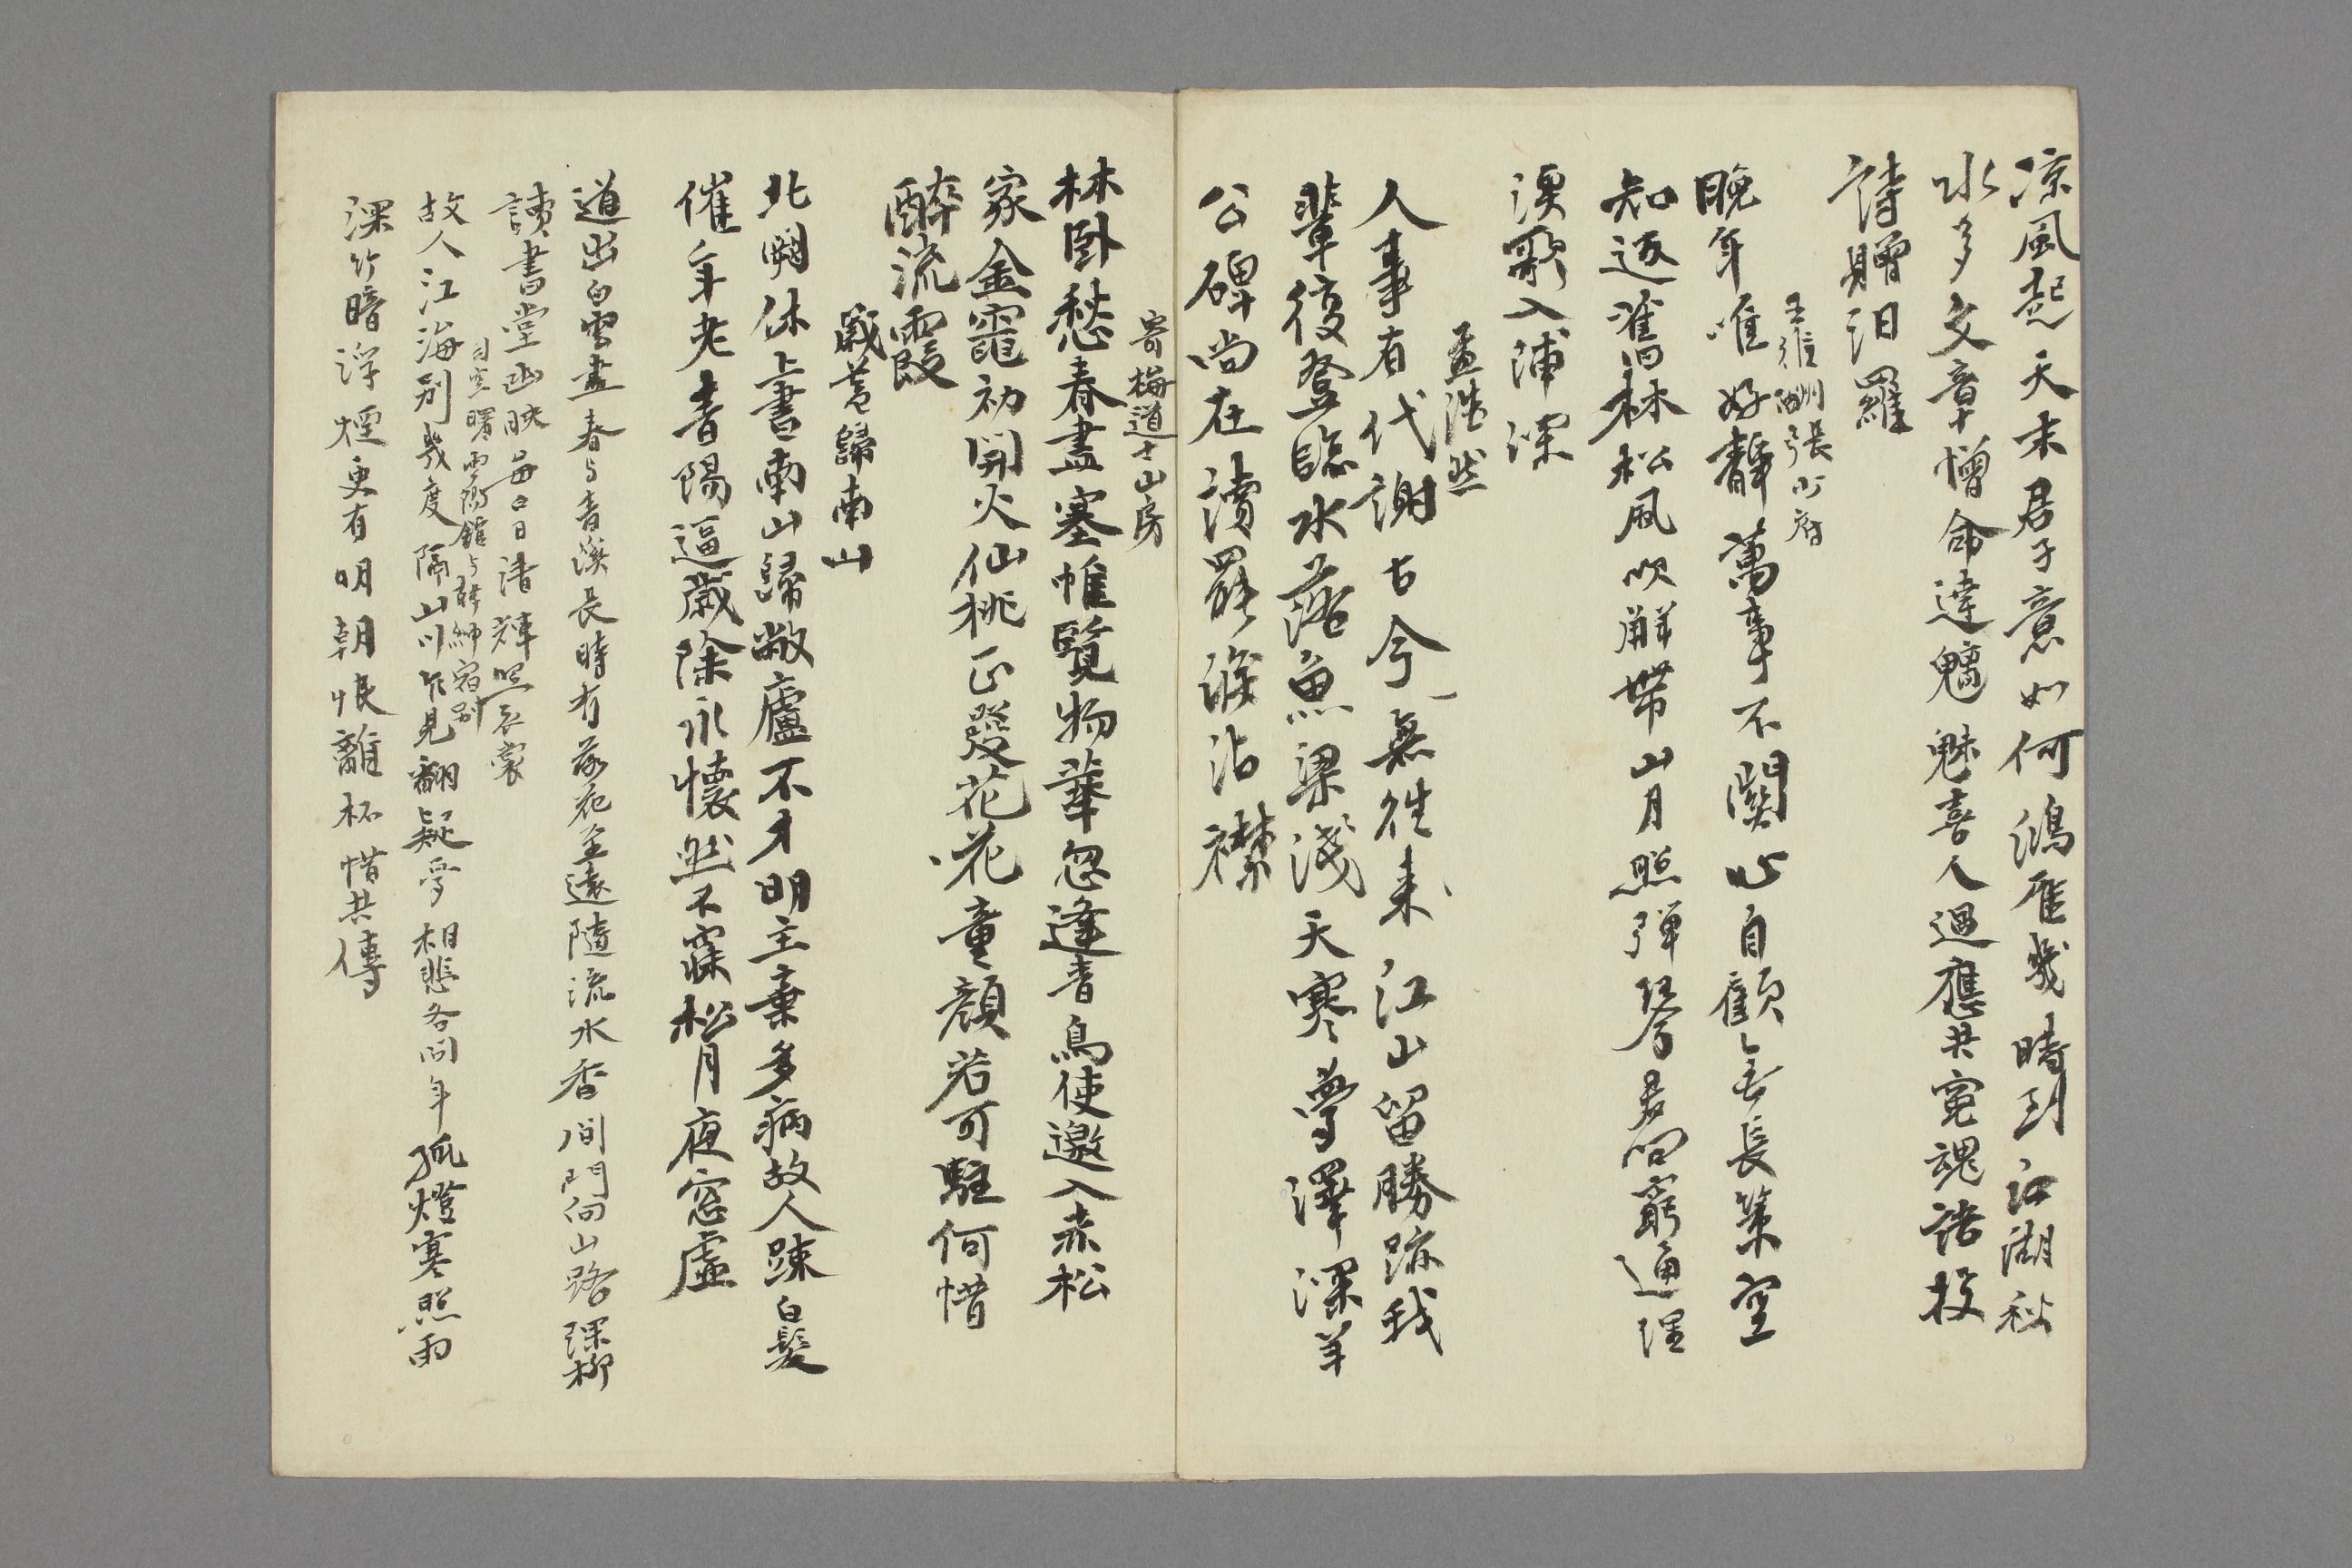 涼風起天末君子意如何鴻雁幾時到江湖秋
水多文章憎命達魑魅喜人過應共寃魂語投
詩贈汨羅
王維酬張少府
晚年唯好靜萬事不關心自顧無長策空
知返舊林松風吹解帶山月照彈琴君問窮通理
漁歌入浦深
孟浩然
人事有代謝古今無徃來江山留勝跡我
輩復登臨水落魚梁淺天寒夢澤深羊
公碑尚在讀罷淚沾襟
寄梅道士山房
林臥愁春盡搴帷覽物華忽逢青鳥使邀入赤松
家金竈初開火仙桃正發花花童顏若可駐何惜
醉流霞
歲暮歸南山
北闕休上書南山歸敝廬不才明主棄多病故人踈白髮
催年老青陽逼歲除永懷愁不寐松月夜窓虛
道由白雲盡春与青溪長時有落花至遠隨流水香閒門向山路深柳
讀書堂幽映每白日清輝照衣裳
司空曙雲陽舘与韓紳宿別
故人江海別幾度隔山川乍見翻疑夢相悲各問年孤燈寒照雨
深竹暗浮煙更有明朝恨離杯惜共傳